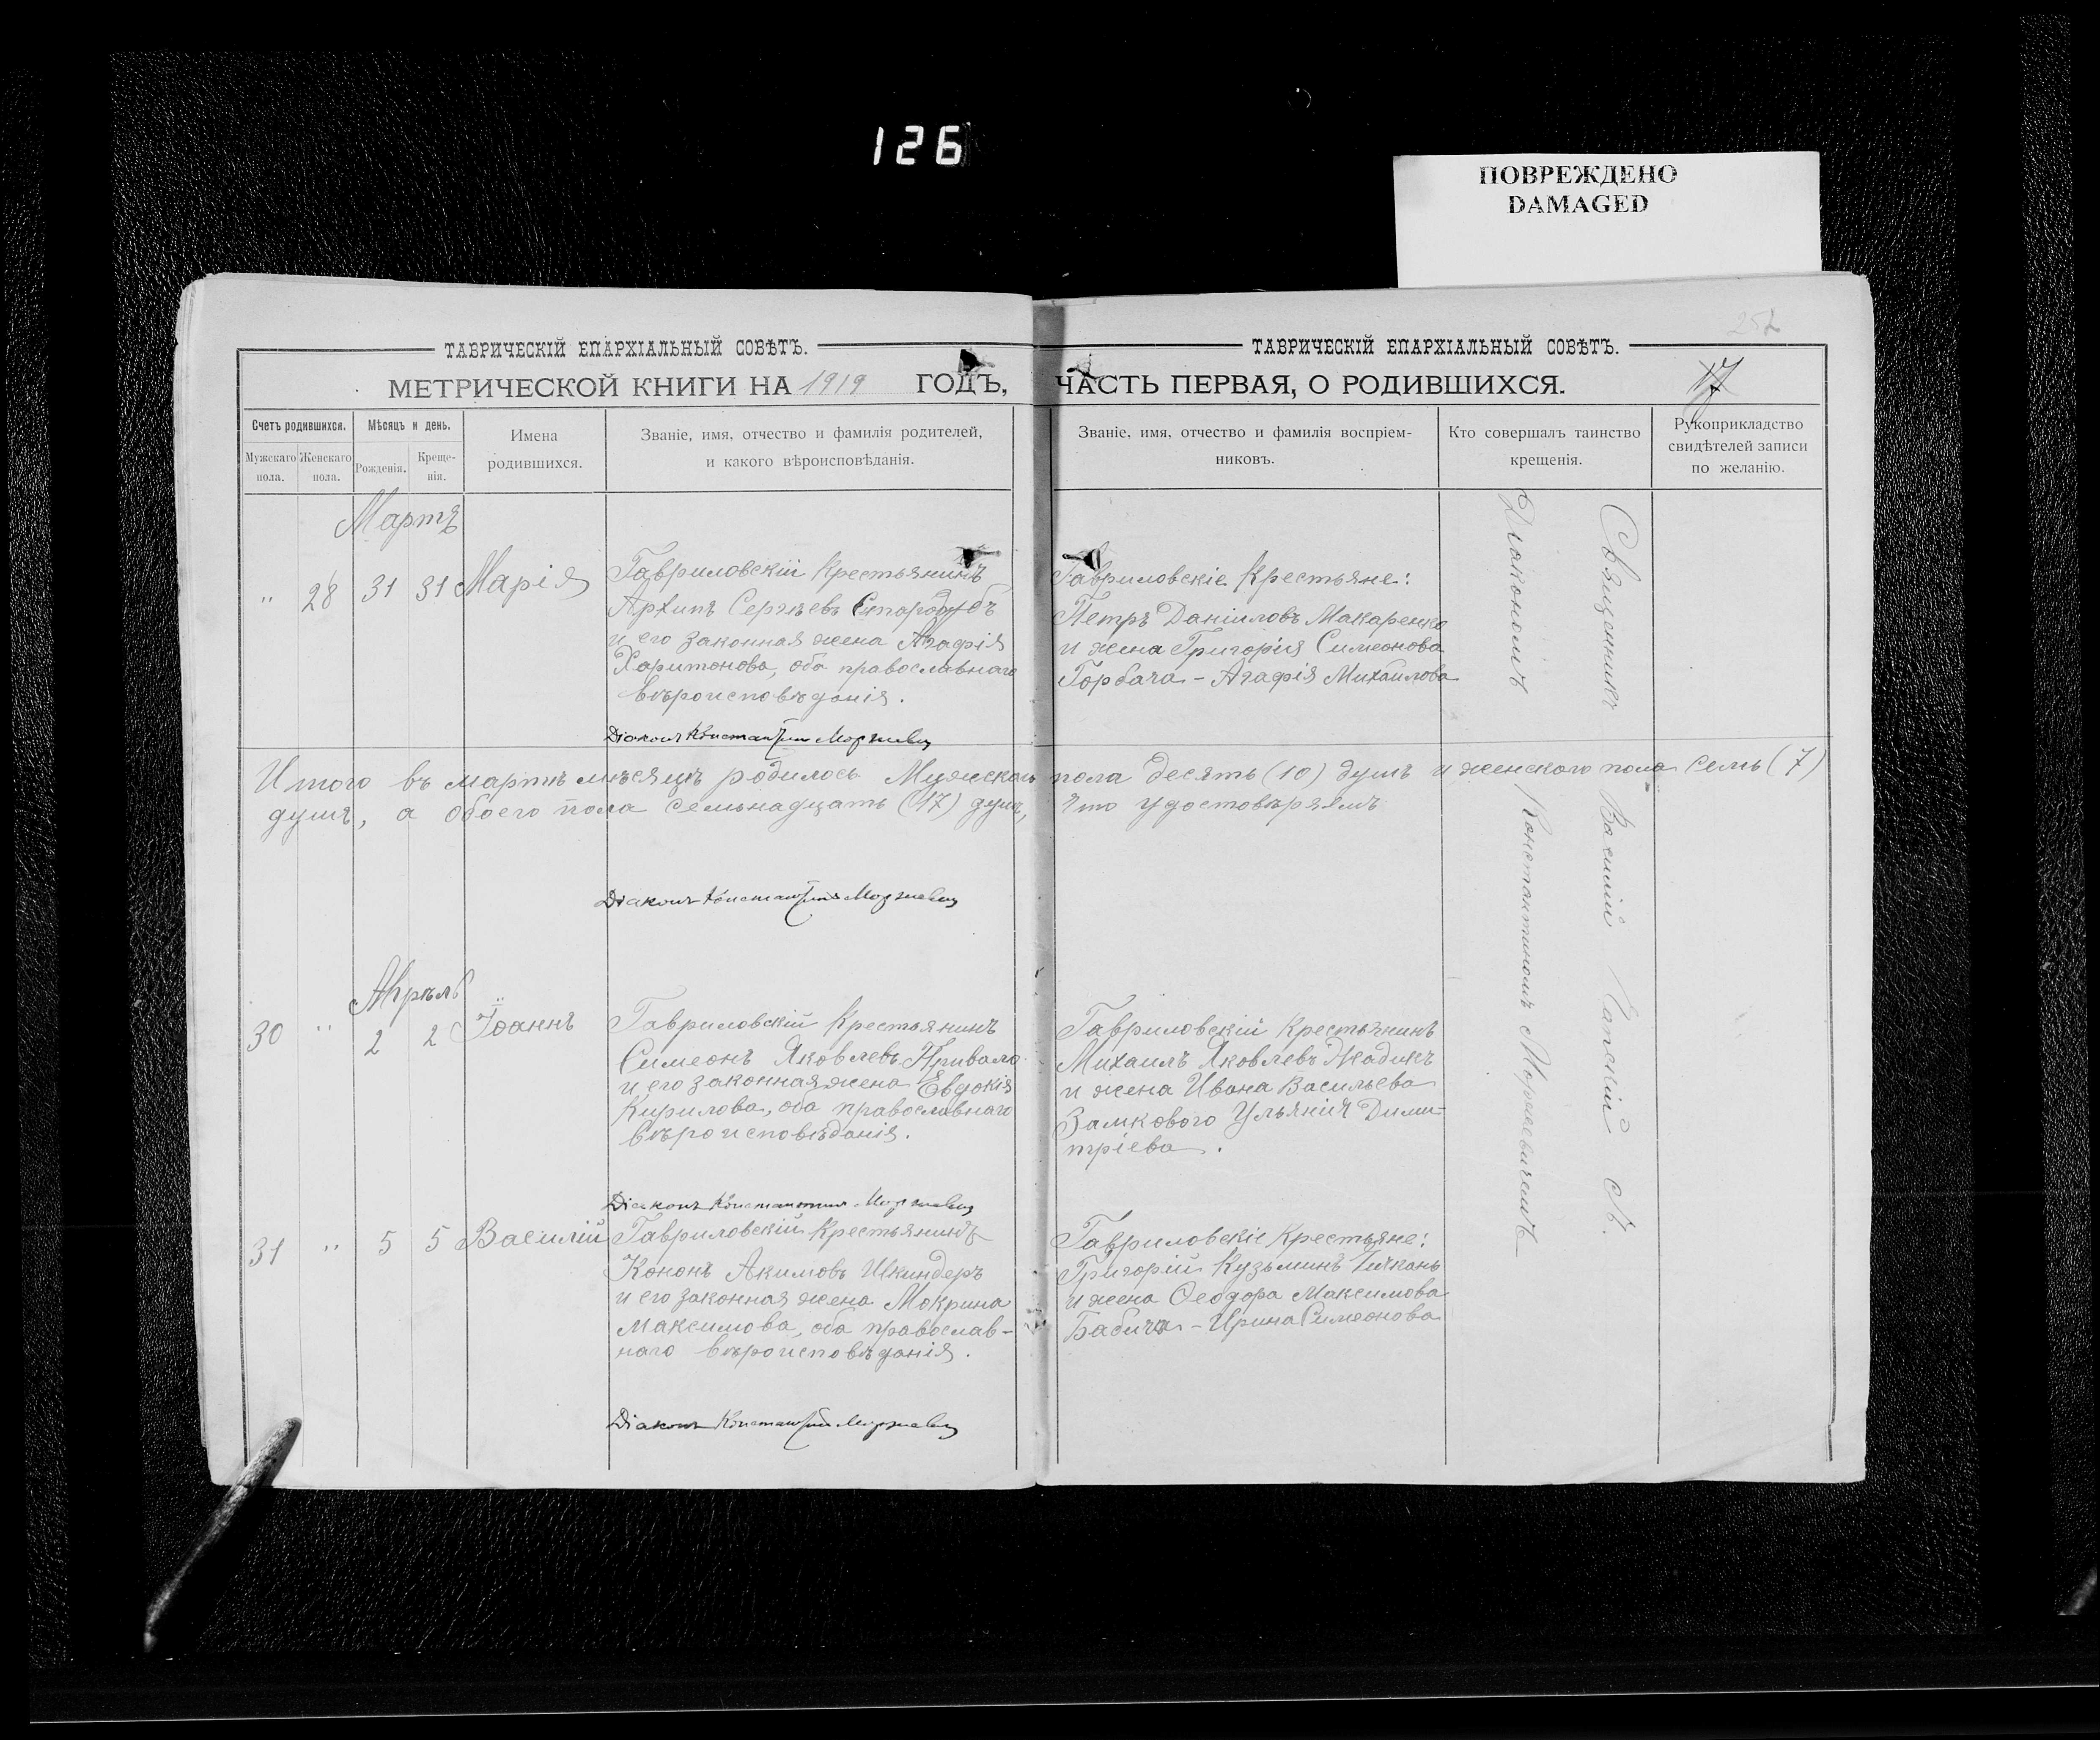 126
ПОВРЕЖДЕНО
DAMAGED
252
ТАВРИЧЕСКІЙ ЕПАРХІАЛЬНЫЙ СОВѢТЪ.
ТАВРИЧЕСКІЙ ЕПАРХІАЛЬНЫЙ СОВѢТЪ.
МЕТРИЧЕСКОЙ КНИГИ НА 1919 ГОДЪ,
ЧАСТЬ ПЕРВАЯ, О РОДИВШИХСЯ.
17
Счетъ родившихся.
Мужскаго пола.
Женскаго пола.
Мѣсяцъ и день.
Рожденія.
Креще-
нія.
Имена
родившихся.
Званіе, имя, отчество и фамилія родителей,
и какого вѣроисповѣданія.
Званіе, имя, отчество и фамилія воспріем-
никовъ.
Кто совершалъ таинство
крещенія.
Рукоприкладство
свидѣтелей записи
по желанію.
Мартъ
" 28 31 31 Марія
Гавриловскій Крестьянинъ
Архипъ Сергѣевъ Стародубъ
и его законная жена Агафія
Харитонова, оба православнаго
вѣроисповѣданія.
Діаконъ Константин Моржевич
Гавриловскіе Крестьяне:
Петръ Даніиловъ Макаренко
и жена Григорія Симеонова
Горбача - Агафія Михайлова
Священникъ Василій
Діакономъ Константиномъ Моржевичемъ
Итого въ мартѣ мѣсяцѣ родилось Мужскаго пола десять (10) душъ и женскаго пола семь (7)
душъ, а обоего пола семьнадцать (17) душъ, что удостовѣряемъ
Діаконъ Константинъ Моржевич
Апрѣль
30 " 2 2 Іоаннъ
Гавриловскій Крестьянинъ
Симеонъ Яковлевъ Привало
и его законная жена Евдокія
Кирилова, оба православнаго
вѣроисповѣданія.
Діаконъ Константин Моржевич
Гавриловскій Крестьянинъ
Михаилъ Яковлевъ Жадикъ
и жена Ивана Васильева
Замкового Ульянія Дими-
тріева.
31 " 5 5 Василій
Гавриловскій Крестьянинъ
Кононъ Акимовъ Шкиндеръ
и его законная жена Мокрина
Максимова, оба православ-
наго вѣроисповѣданія.
Діаконъ Константин Моржевич
Гавриловскіе Крестьяне:
Григорій Кузьминъ
и жена Ѳеодора Максимова
Бабича - Ирина Симеонова